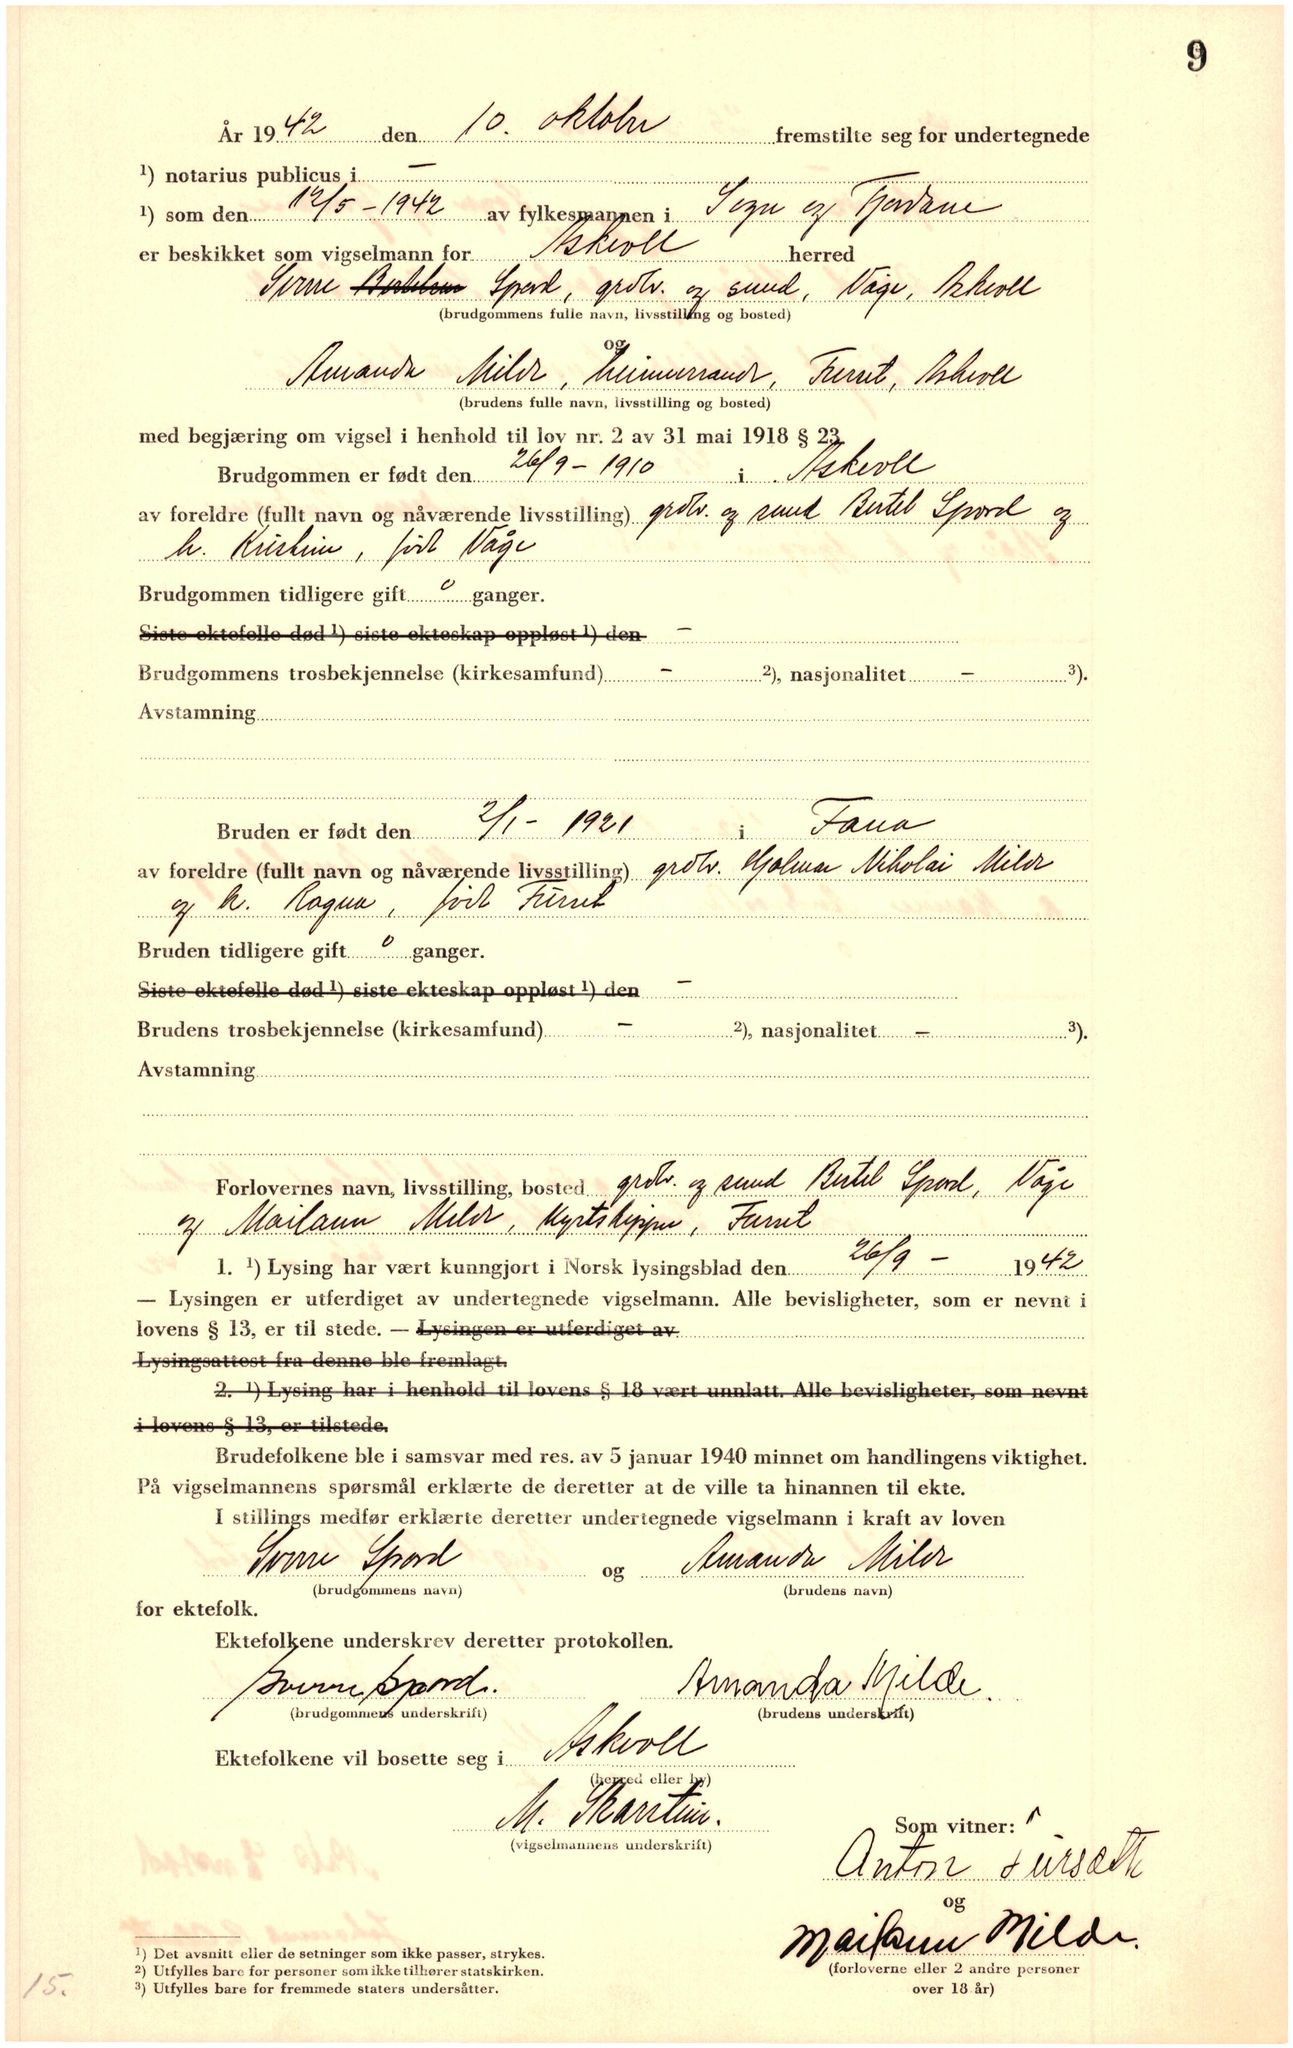 9
År 1942 den 10. oktober fremstilte seg for undertegnede
¹) notarius publicus i —
¹) som den 12/5 - 1942 av fylkesmannen i Sogn og Fjordane
er beskikket som vigselmann for Askvoll herred
Sverre Spord, grdbr. og smed, Våge, Askvoll
(brudgommens fulle navn, livsstilling og bosted)
og
Amanda Milde, heimeverande, Furset, Askvoll
(brudens fulle navn, livsstilling og bosted)
med begjæring om vigsel i henhold til lov nr. 2 av 31 mai 1918 § 23
Brudgommen er født den 26/9 - 1910 i Askvoll
av foreldre (fullt navn og nåværende livsstilling) grdbr. og smed Bertel Spord og
h. Kristine, født Våge
Brudgommen tidligere gift 0 ganger.
Siste ektefelle død ¹) siste ekteskap oppløst ¹) den —
Brudgommens trosbekjennelse (kirkesamfund) — ²), nasjonalitet — ³).
Avstamning
Bruden er født den 2/1 - 1921 i Fana
av foreldre (fullt navn og nåværende livsstilling) grdbr. Hjalmar Nikolai Milde
og h. Ragna, født Furset
Bruden tidligere gift 0 ganger.
Siste ektefelle død ¹) siste ekteskap oppløst ¹) den —
Brudens trosbekjennelse (kirkesamfund) — ²), nasjonalitet — ³).
Avstamning
Forlovernes navn, livsstilling, bosted grdbr. og smed Bertel Spord, Våge
og Milde, Furset
1. ¹) Lysing har vært kunngjort i Norsk lysingsblad den 26/9 - 1942
— Lysingen er utferdiget av undertegnede vigselmann. Alle bevisligheter, som er nevnt i
lovens § 13, er til stede. — Lysingen er utferdiget av
Lysingsattest fra denne ble fremlagt.
2. ¹) Lysing har i henhold til lovens § 18 vært unnlatt. Alle bevisligheter, som nevnt
i lovens § 13, er tilstede.
Brudefolkene ble i samsvar med res. av 5 januar 1940 minnet om handlingens viktighet.
På vigselmannens spørsmål erklærte de deretter at de ville ta hinannen til ekte.
I stillings medfør erklærte deretter undertegnede vigselmann i kraft av loven
Sverre Spord og Amanda Milde
(brudgommens navn) (brudens navn)
for ektefolk.
Ektefolkene underskrev deretter protokollen.
Sverre Spord. Amanda Milde.
(brudgommens underskrift) (brudens underskrift)
Ektefolkene vil bosette seg i Askvoll
(herred eller by)
M. Skarstein.
(vigselmannens underskrift)
Som vitner:
Anton Fursæth
og
Milde.
(forloverne eller 2 andre personer
over 18 år)
¹) Det avsnitt eller de setninger som ikke passer, strykes.
²) Utfylles bare for personer som ikke tilhører statskirken.
³) Utfylles bare for fremmede staters undersåtter.
15.